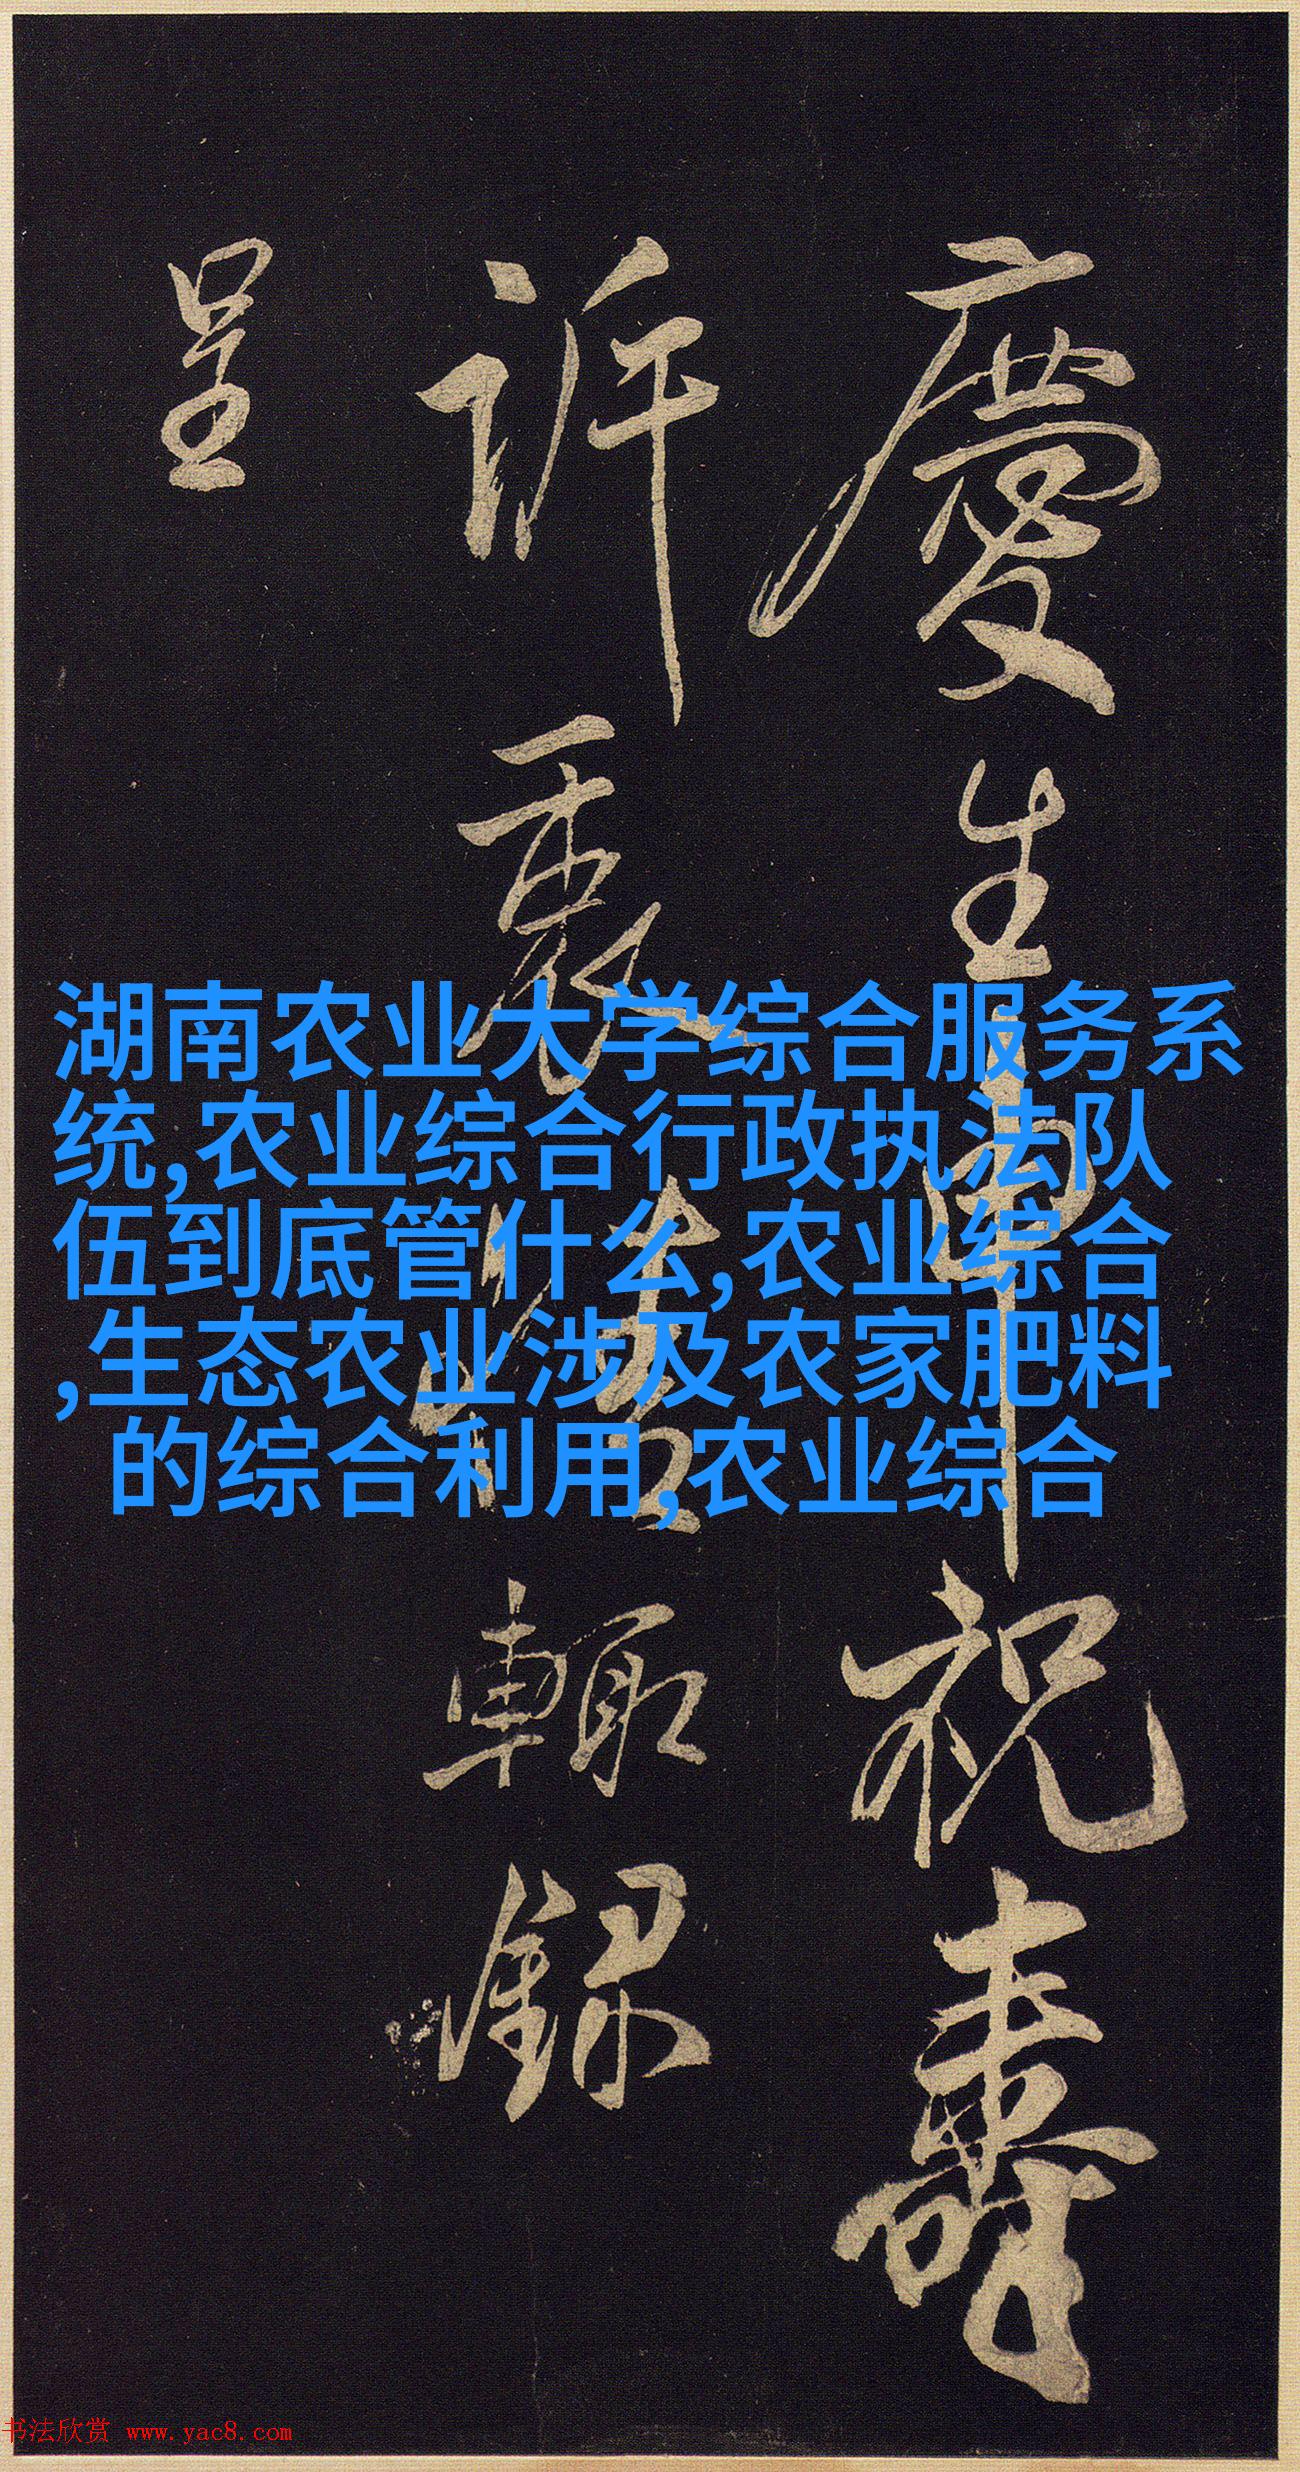 慶生申祝壽
訢裏
輙録
呈
湖南农业大学综合服务系
统,农业综合行政执法队
伍到底管什么,农业综合
,生态农业涉及农家肥料
的综合利用,农业综合
书法欣赏 www.yac8.com